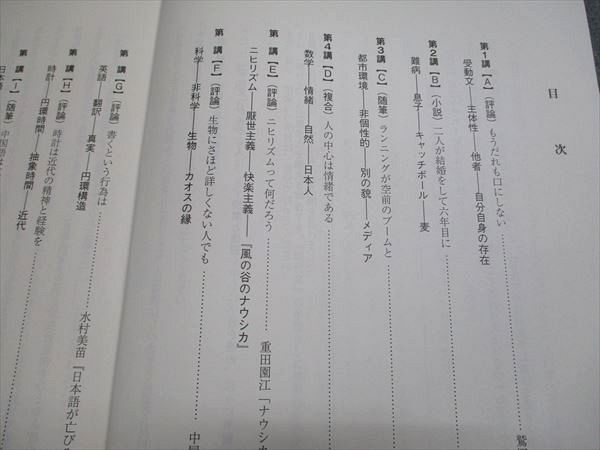 目 次
第1講【A】(評論) もうだれも口にしない……………鷲
受動文──主体性──他者──自分自身の存在
第2講【B】(小説) 二人が結婚をして六年目に……………
難病──息子──キャッチボール──麦
第3講【C】(随筆) ランニングが空前のブームと……………
都市環境──非個性的──別の貌──メディア
第4講【D】(複合) 人の中心は情緒である……………
数学──情緒──自然──日本人
第 講【E】(評論) ニヒリズムって何だろう……………重田園江「ナウシカ
ニヒリズム──厭世主義──快楽主義──『風の谷のナウシカ』
第 講【F】(評論) 生物にさほど詳しくない人でも……………中
科学──非科学──生物──カオスの縁
第 講【G】(評論) 書くという行為は……………水村美苗『日本語が亡び
英語──翻訳──真実──円環構造
第 講【H】(評論) 時計は近代の精神と経験を……………
時計──円環時間──抽象時間──近代
第 講【I】(随筆) 中国語は
日本語